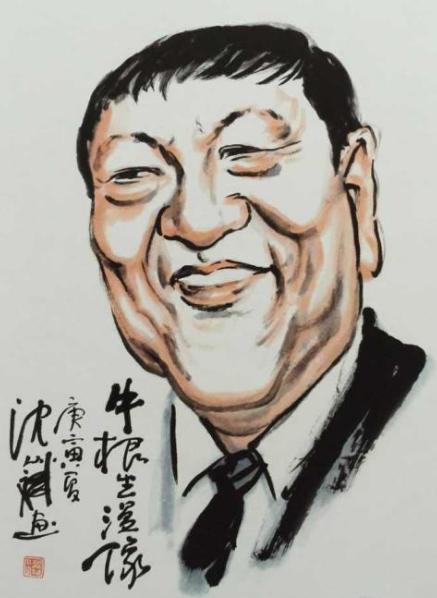 牛根生漫像
庚寅夏
沈 画